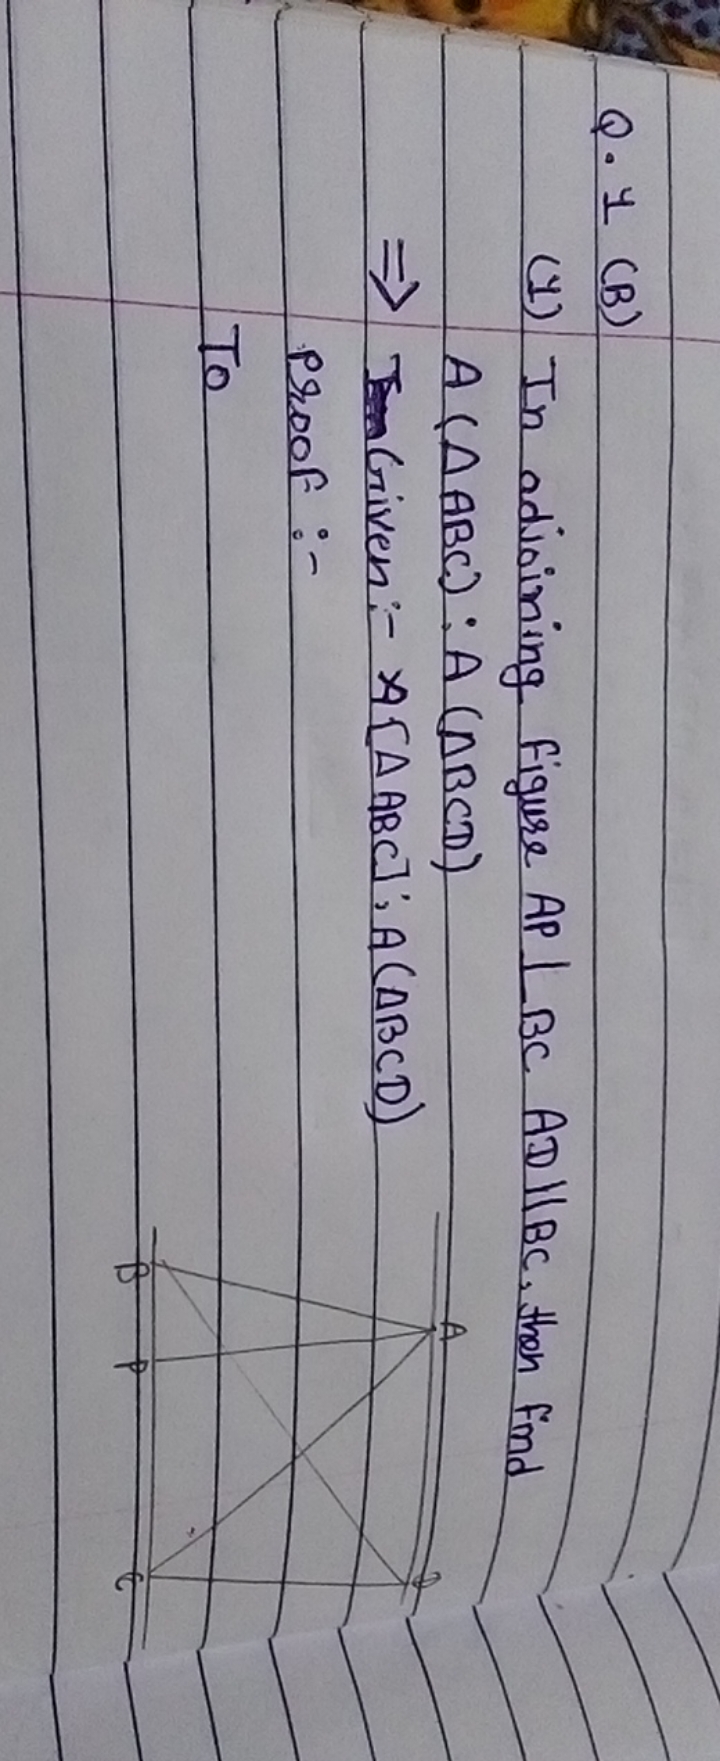 Q. 1 (B)
(1) In adjoining figure AP ⊥ BC AD || BC, then find
A (Δ ABC) : A (ΔBCD)
⇒ Given :- A [Δ ABC] : A (ΔBCD)
Proof :-
To
A
D
B
P
C